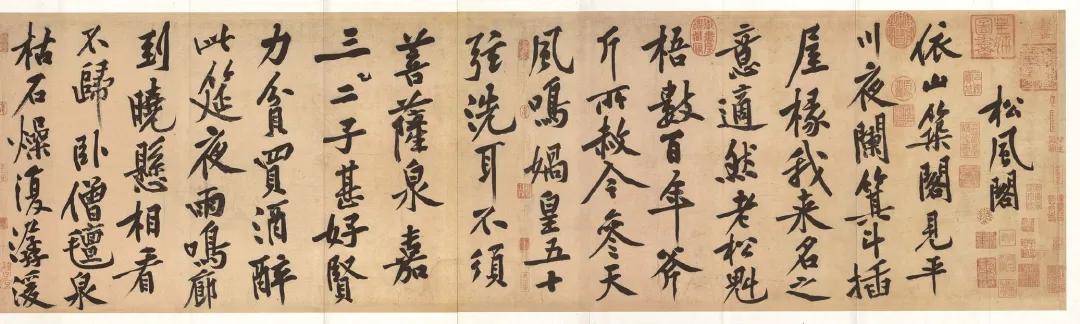 松風閣
依山築閣見平
川夜闌箕斗插
屋椽我来名之
意適然老松魁
梧數百年斧
斤所赦今參天
風鳴媧皇五十
弦洗耳不須
菩薩泉嘉
三二子甚好賢
力貧買酒醉
此筵夜雨鳴廊
到曉懸相看
不歸臥僧氊泉
枯石燥復潺湲